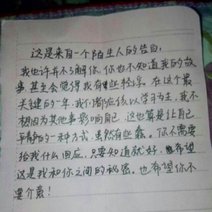 这是来自一个陌生人的告白,
我也许并不了解你, 你也不知道我的故
事, 甚至会觉得我有些轻浮。在这个最
关键的一年, 我们都应该以学习为主, 我不
想因为其他事影响自己, 这也算是让自己
平静的一种方式, 虽然有些蠢。你不需要
给我什么回应, 只要知道就好。希望
这是我和你之间的秘密。也希望你不
要介意!